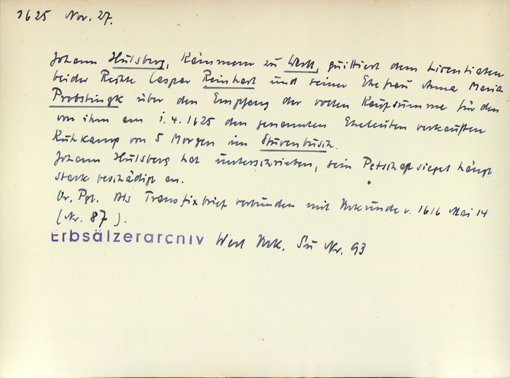 1625 Nov. 27.
Johann Hulsberg, Kämmerer zu Werl, quittiert dem Licentiaten
beider Rechte Caspar Reinhart und seiner Ehefrau Anna Maria
Probstingk über den Empfang der vollen Kaufsumme für den
von ihm am 1.4.1625 den genannten Eheleuten verkauften
Kuhkamp von 5 Morgen im Sturenbusch.
Johann Hulsberg hat unterschrieben, sein Petschaftsiegel hängt
stark beschädigt an.
Or. Pgt. Als Transfixbrief verbunden mit Urkunde v. 1616 Mai 14
(Nr. 87).
Erbsälzerarchiv Werl Urk. Nr. 93